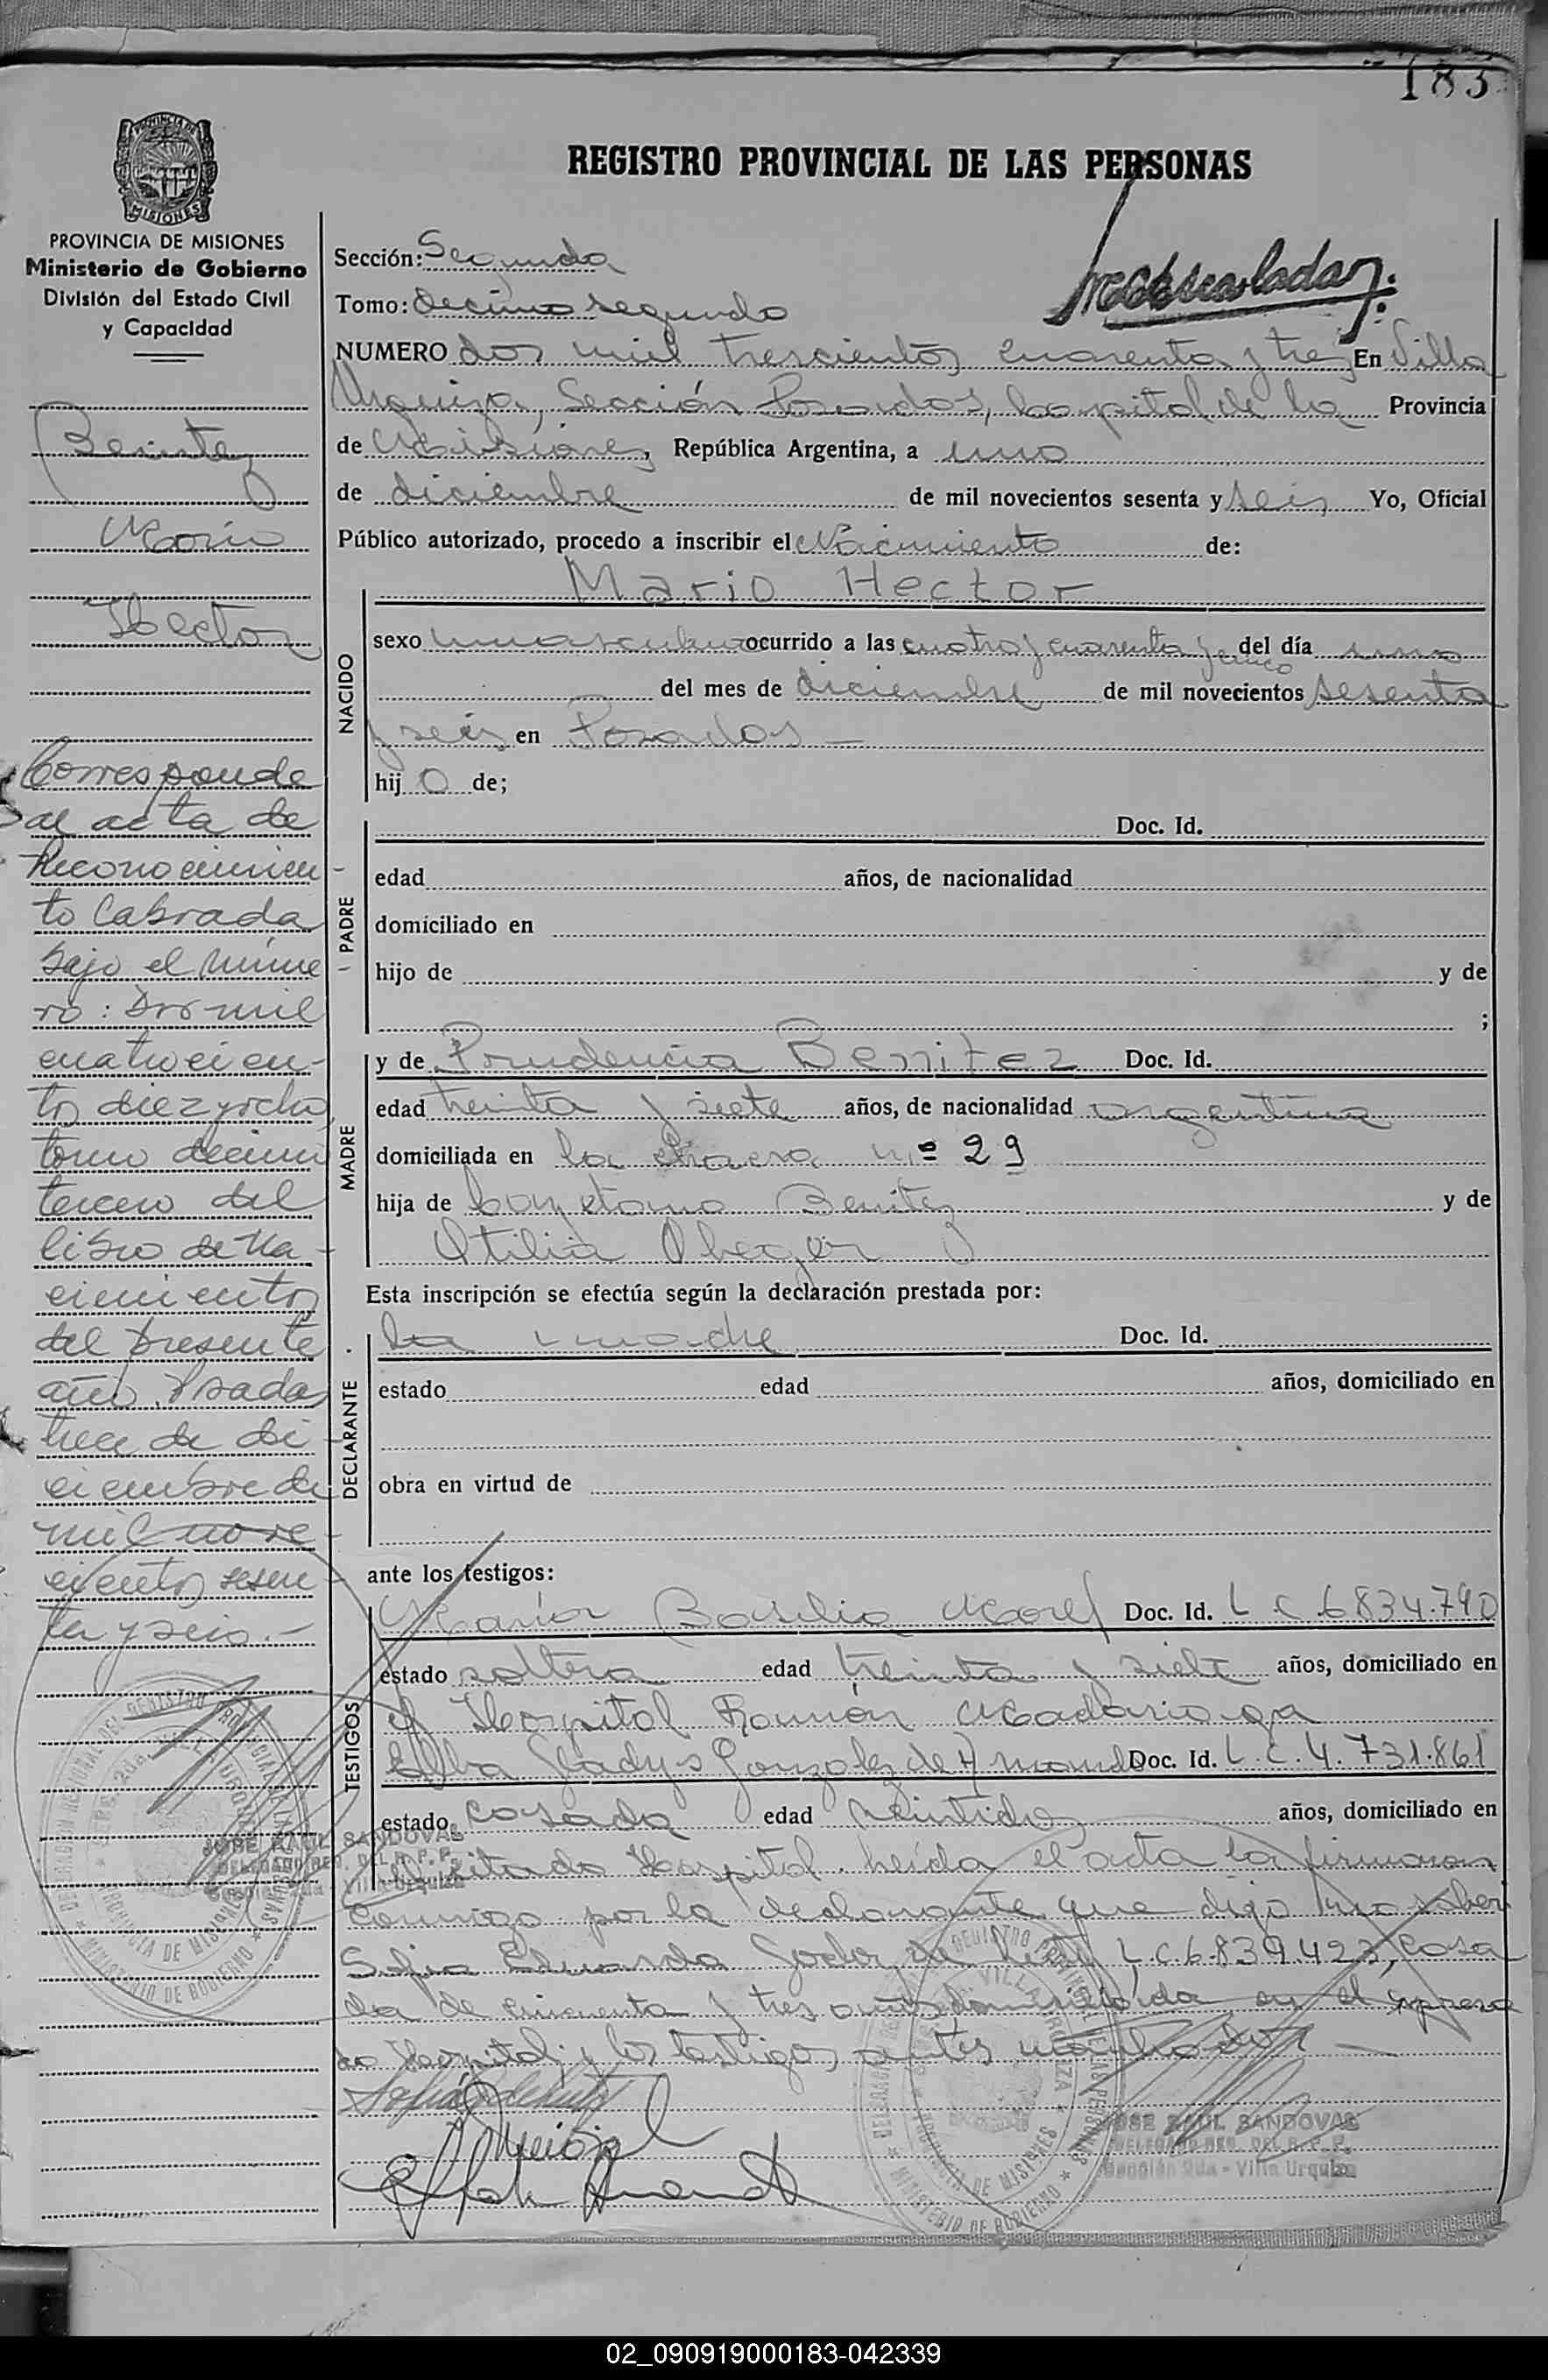 183
REGISTRO PROVINCIAL DE LAS PERSONAS
PROVINCIA DE MISIONES
MISIONES
PROVINCIA DE MISIONES
Ministerio de Gobierno
División del Estado Civil
y Capacidad
Benitez
Mario
Hector
Corresponde
al acta de
Reconocimien
to labrada
bajo el núme
ro: Dos mil
cuatrocien-
tos diez y ocho
tomo decimo
tercero del
libro de Na-
cimientos
del presente
año. Posadas
trece de di
ciembre de
mil nove-
cientos sesen
ta y seis.-
Sección: Segunda
Tomo: decimo segundo
NUMERO dos mil trescientos cuarenta y tres En Villa
Urquiza, Sección Posadas, capital de la Provincia
de Misiones, República Argentina, a uno
de diciembre de mil novecientos sesenta y seis Yo, Oficial
Público autorizado, procedo a inscribir el Nacimiento de:
Mario Hector
NACIDO
sexo masculino ocurrido a las cuatro y cuarenta y cinco del día uno
del mes de diciembre de mil novecientos sesenta
y seis en Posadas —
hij o de;
PADRE
Doc. Id.
edad años, de nacionalidad
domiciliado en
hijo de y de
;
MADRE
y de Prudencia Benitez Doc. Id.
edad treinta y siete años, de nacionalidad argentina
domiciliada en la chacra nº 29
hija de Cayetano Benitez y de
Otilia
Esta inscripción se efectúa según la declaración prestada por:
DECLARANTE
la madre Doc. Id.
estado edad años, domiciliado en
obra en virtud de
ante los testigos:
TESTIGOS
María Basilia Doc. Id. L C 6834.790
estado soltera edad treinta y siete años, domiciliado en
el Hospital Ramón Madariaga
Elba Gladys Gonzalez de Doc. Id. L.C.4.731.861
estado casada edad veintidos años, domiciliado en
el citado Hospital. leída el acta la firmaron
conmigo por la declarante que dijo no saber
Sofia Eduarda de L.C.6.839.423, casa
da de cincuenta y tres años domiciliada en el expresa
do Hospital y los testigos antes nombrados —
JOSE RAUL SANDOVAS
DELEGADO REG. DEL R.P.P.
Sección 2da - Villa Urquiza
JOSE RAUL SANDOVAS
DELEGADO REG. DEL R.P.P.
Sección 2da - Villa Urquiza
02_090919000183-042339